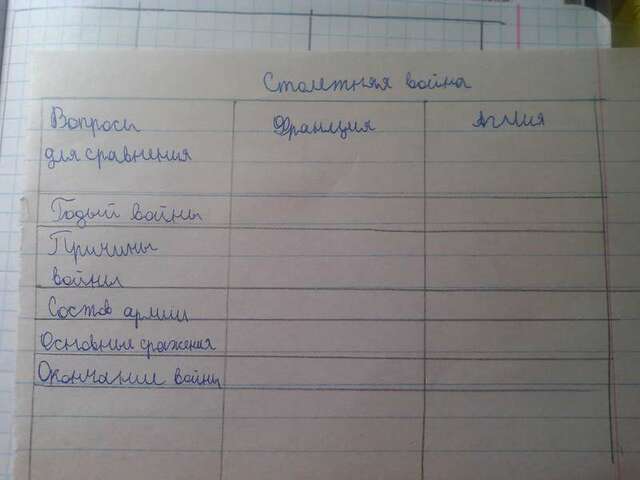 Столетняя война
Вопросы
для сравнения
Франция
Англия
Годый войны
Причины
войны
Состав армии
Основния сражения
Окончание войны